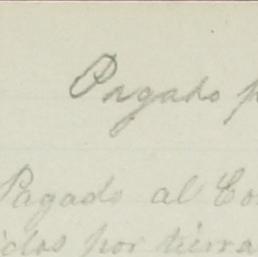 Pagado p
Pagado al Co
idos por tierra